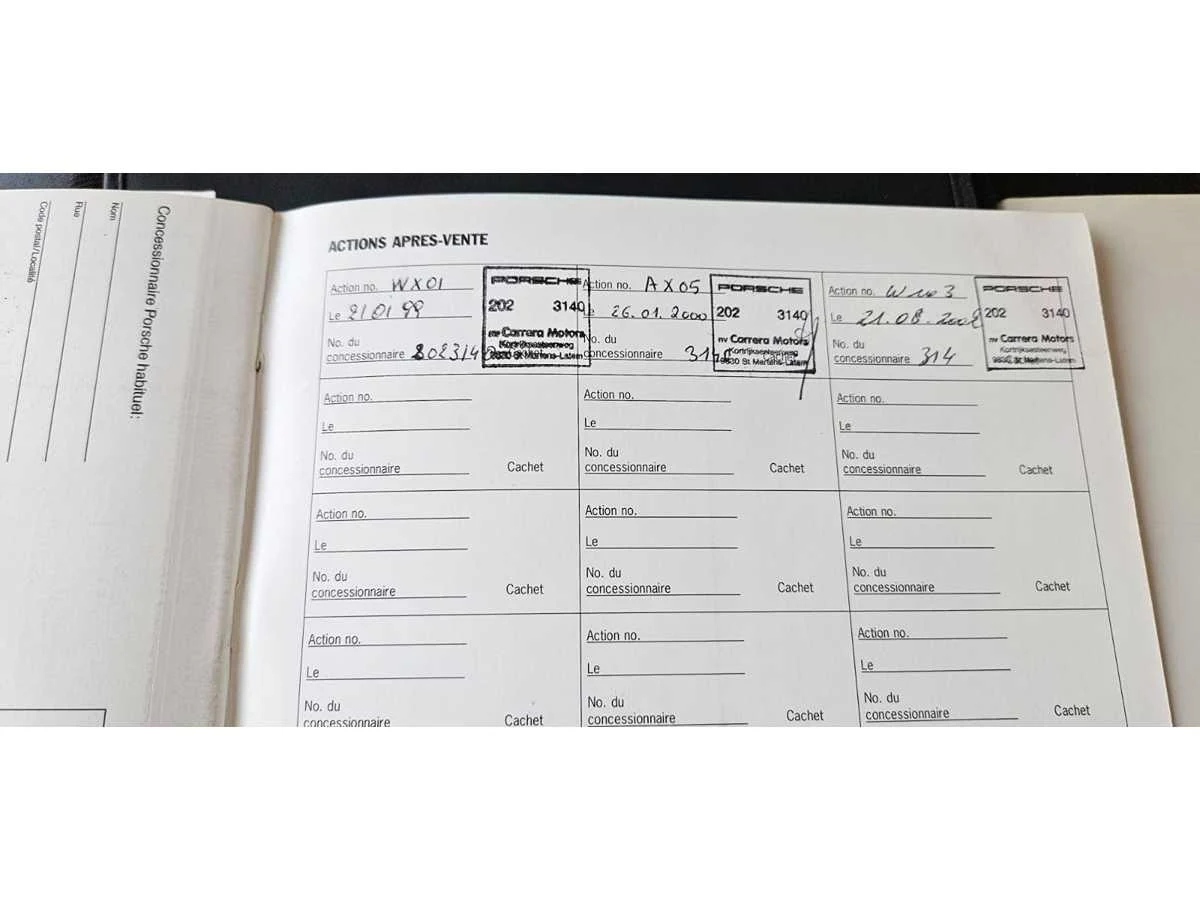 Concessionnaire Porsche habituel:
Nom
Rue
Code postal/Localité
ACTIONS APRES-VENTE
Action no. WX01
Le 21 01 99
No. du
concessionnaire
PORSCHE
202 3140
nv Carrera Motors
Kortrijksesteenweg
9830 St Martens-Latem
Action no. AX05
Le 26.01.2000
No. du
concessionnaire 3140
PORSCHE
202 3140
nv Carrera Motors
Kortrijksesteenweg
9830 St Martens-Latem
Action no.
Le 21.08.2002
No. du
concessionnaire 314
PORSCHE
202 3140
nv Carrera Motors
Kortrijksesteenweg
9830 St Martens-Latem
Action no.
Le
No. du
concessionnaire Cachet
Action no.
Le
No. du
concessionnaire Cachet
Action no.
Le
No. du
concessionnaire Cachet
Action no.
Le
No. du
concessionnaire Cachet
Action no.
Le
No. du
concessionnaire Cachet
Action no.
Le
No. du
concessionnaire Cachet
Action no.
Le
No. du
concessionnaire Cachet
Action no.
Le
No. du
concessionnaire Cachet
Action no.
Le
No. du
concessionnaire Cachet